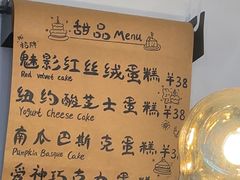 甜品 Menu
招牌
魅影红丝绒蛋糕 ¥38
Red velvet Cake
纽约酸芝士蛋糕 ¥38
Yogurt Cheese Cake
南瓜巴斯克蛋糕
Pumpkin Basque Cake